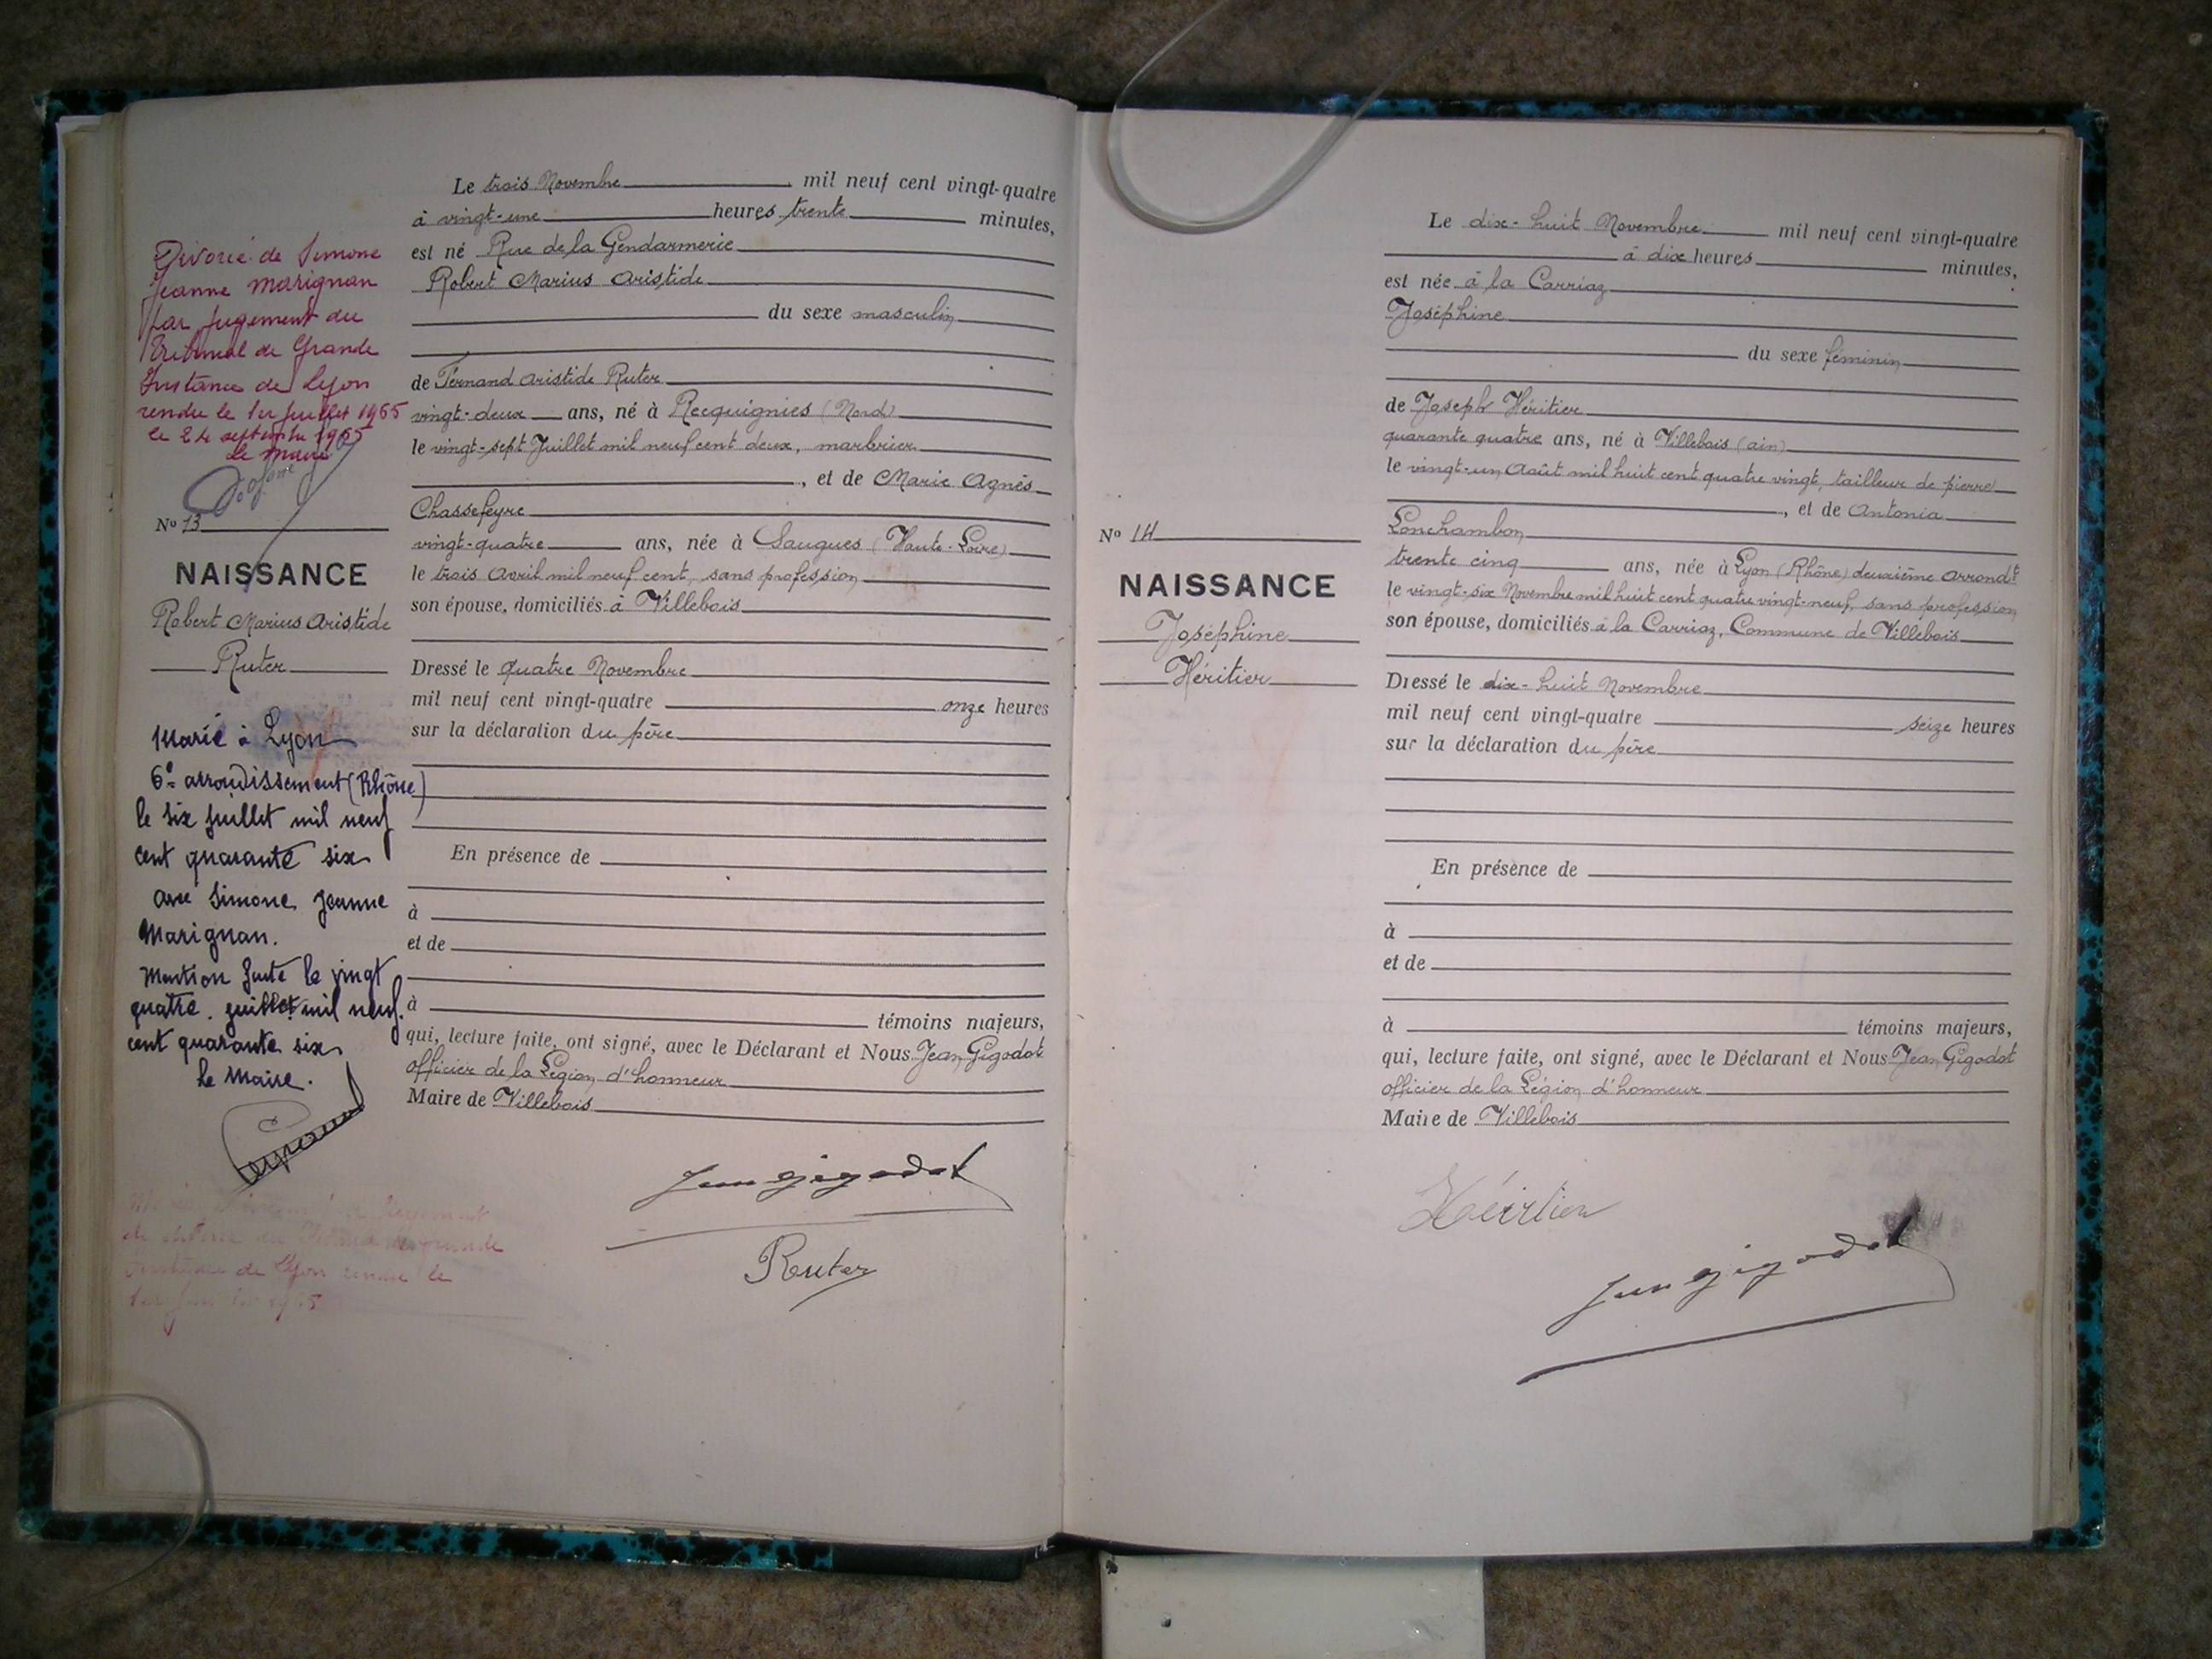 Divorcé de Simone
Jeanne Marignan
par jugement du
Tribunal de Grande
Instance de Lyon
rendu le 1er Juillet 1965
le 24 septembre 1965
Le Maire
No 13
NAISSANCE
Robert Marius Aristide
Ruter
Marié à Lyon
6e arrondissement (Rhône)
le six juillet mil neuf
cent quarante six
avec Simone Jeanne
Marignan.
Mention faite le vingt
quatre juillet mil neuf
cent quarante six
le Maire.
de Lyon rendu le
Le trois Novembre mil neuf cent vingt-quatre
à vingt-une heures trente minutes,
est né Rue de la Gendarmerie
Robert Marius Aristide
du sexe masculin
de Fernand Aristide Ruter
vingt-deux ans, né à Recquignies (Nord)
le vingt-sept Juillet mil neuf cent deux, marbrier
, et de Marie Agnès
Chassefeyre
vingt-quatre ans, née à Saugues (Haute-Loire)
le trois Avril mil neuf cent, sans profession
son épouse, domiciliés à Villebois
Dressé le quatre Novembre
mil neuf cent vingt-quatre onze heures
sur la déclaration du père
En présence de
à
et de
à témoins majeurs,
qui, lecture faite, ont signé, avec le Déclarant et Nous Jean Gigodot
officier de la Légion d'honneur
Maire de Villebois
Jean Gigodot
Ruter
No 14
NAISSANCE
Joséphine
Héritier
Le dix-huit Novembre mil neuf cent vingt-quatre
à dix heures minutes,
est née à la Carriaz
Joséphine
du sexe féminin
de Joseph Héritier
quarante quatre ans, né à Villebois (ain)
le vingt-un Août mil huit cent quatre vingt, tailleur de pierre
, et de Antonia
Lonchambon
trente cinq ans, née à Lyon (Rhône) deuxième arrondt
le vingt-six Novembre mil huit cent quatre vingt-neuf, sans profession
son épouse, domiciliés à la Carriaz, Commune de Villebois
Dressé le dix-huit Novembre
mil neuf cent vingt-quatre seize heures
sur la déclaration du père
En présence de
à
et de
à témoins majeurs,
qui, lecture faite, ont signé, avec le Déclarant et Nous Jean Gigodot
officier de la Légion d'honneur
Maire de Villebois
Héritier
Jean Gigodot